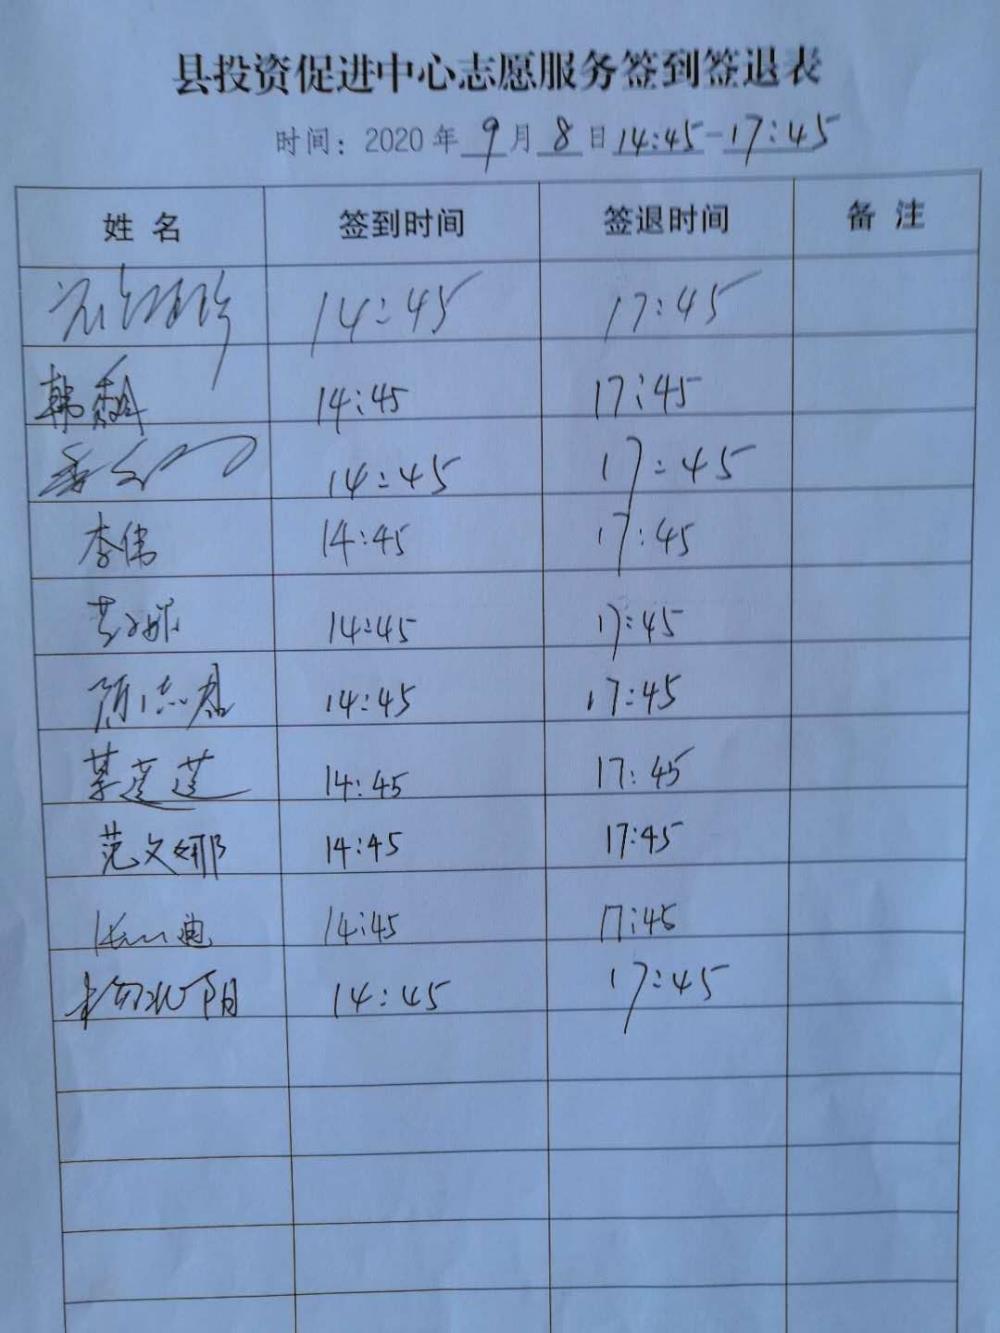 县投资促进中心志愿服务签到签退表
时间：2020年 9 月 8 日 14:45-17:45
姓 名 签到时间 签退时间 备 注
14:45 17:45
韩 14:45 17:45
14:45 17:45
李伟 14:45 17:45
14:45 17:45
志君 14:45 17:45
莲莲 14:45 17:45
范文娜 14:45 17:45
迪 14:45 17:45
阳 14:45 17:45